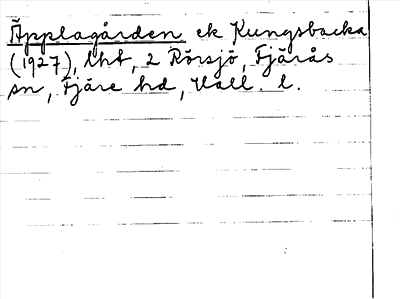 Äpplagården ek Kungsbacka
(1927), lht, 2 Rörsjö, Fjärås
sn, Fjäre hd, Hall. l.